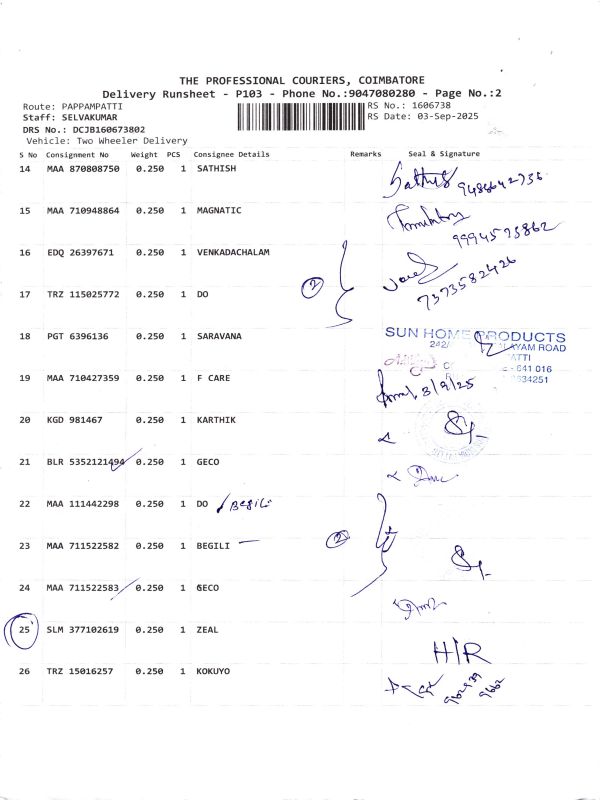 THE PROFESSIONAL COURIERS, COIMBATORE
Delivery Runsheet - P103 - Phone No.:9047080280 - Page No.:2
Route: PAPPAMPATTI RS No.: 1606738
Staff: SELVAKUMAR RS Date: 03-Sep-2025
DRS No.: DCJB160673802
Vehicle: Two Wheeler Delivery
S No Consignment No Weight PCS Consignee Details Remarks Seal & Signature
14 MAA 870808750 0.250 1 SATHISH Sathis
15 MAA 710948864 0.250 1 MAGNATIC
9994573862
16 EDQ 26397671 0.250 1 VENKADACHALAM
2
17 TRZ 115025772 0.250 1 DO 7373582426
18 PGT 6396136 0.250 1 SARAVANA SUN HOME PRODUCTS
242/ ALAYAM ROAD
ATTI
- 641 016
19 MAA 710427359 0.250 1 F CARE 3/9/25 634251
20 KGD 981467 0.250 1 KARTHIK
21 BLR 5352121494 0.250 1 GECO
22 MAA 111442298 0.250 1 DO Begili
23 MAA 711522582 0.250 1 BEGILI 2
24 MAA 711522583 0.250 1 GECO
25 SLM 377102619 0.250 1 ZEAL H/R
26 TRZ 15016257 0.250 1 KOKUYO